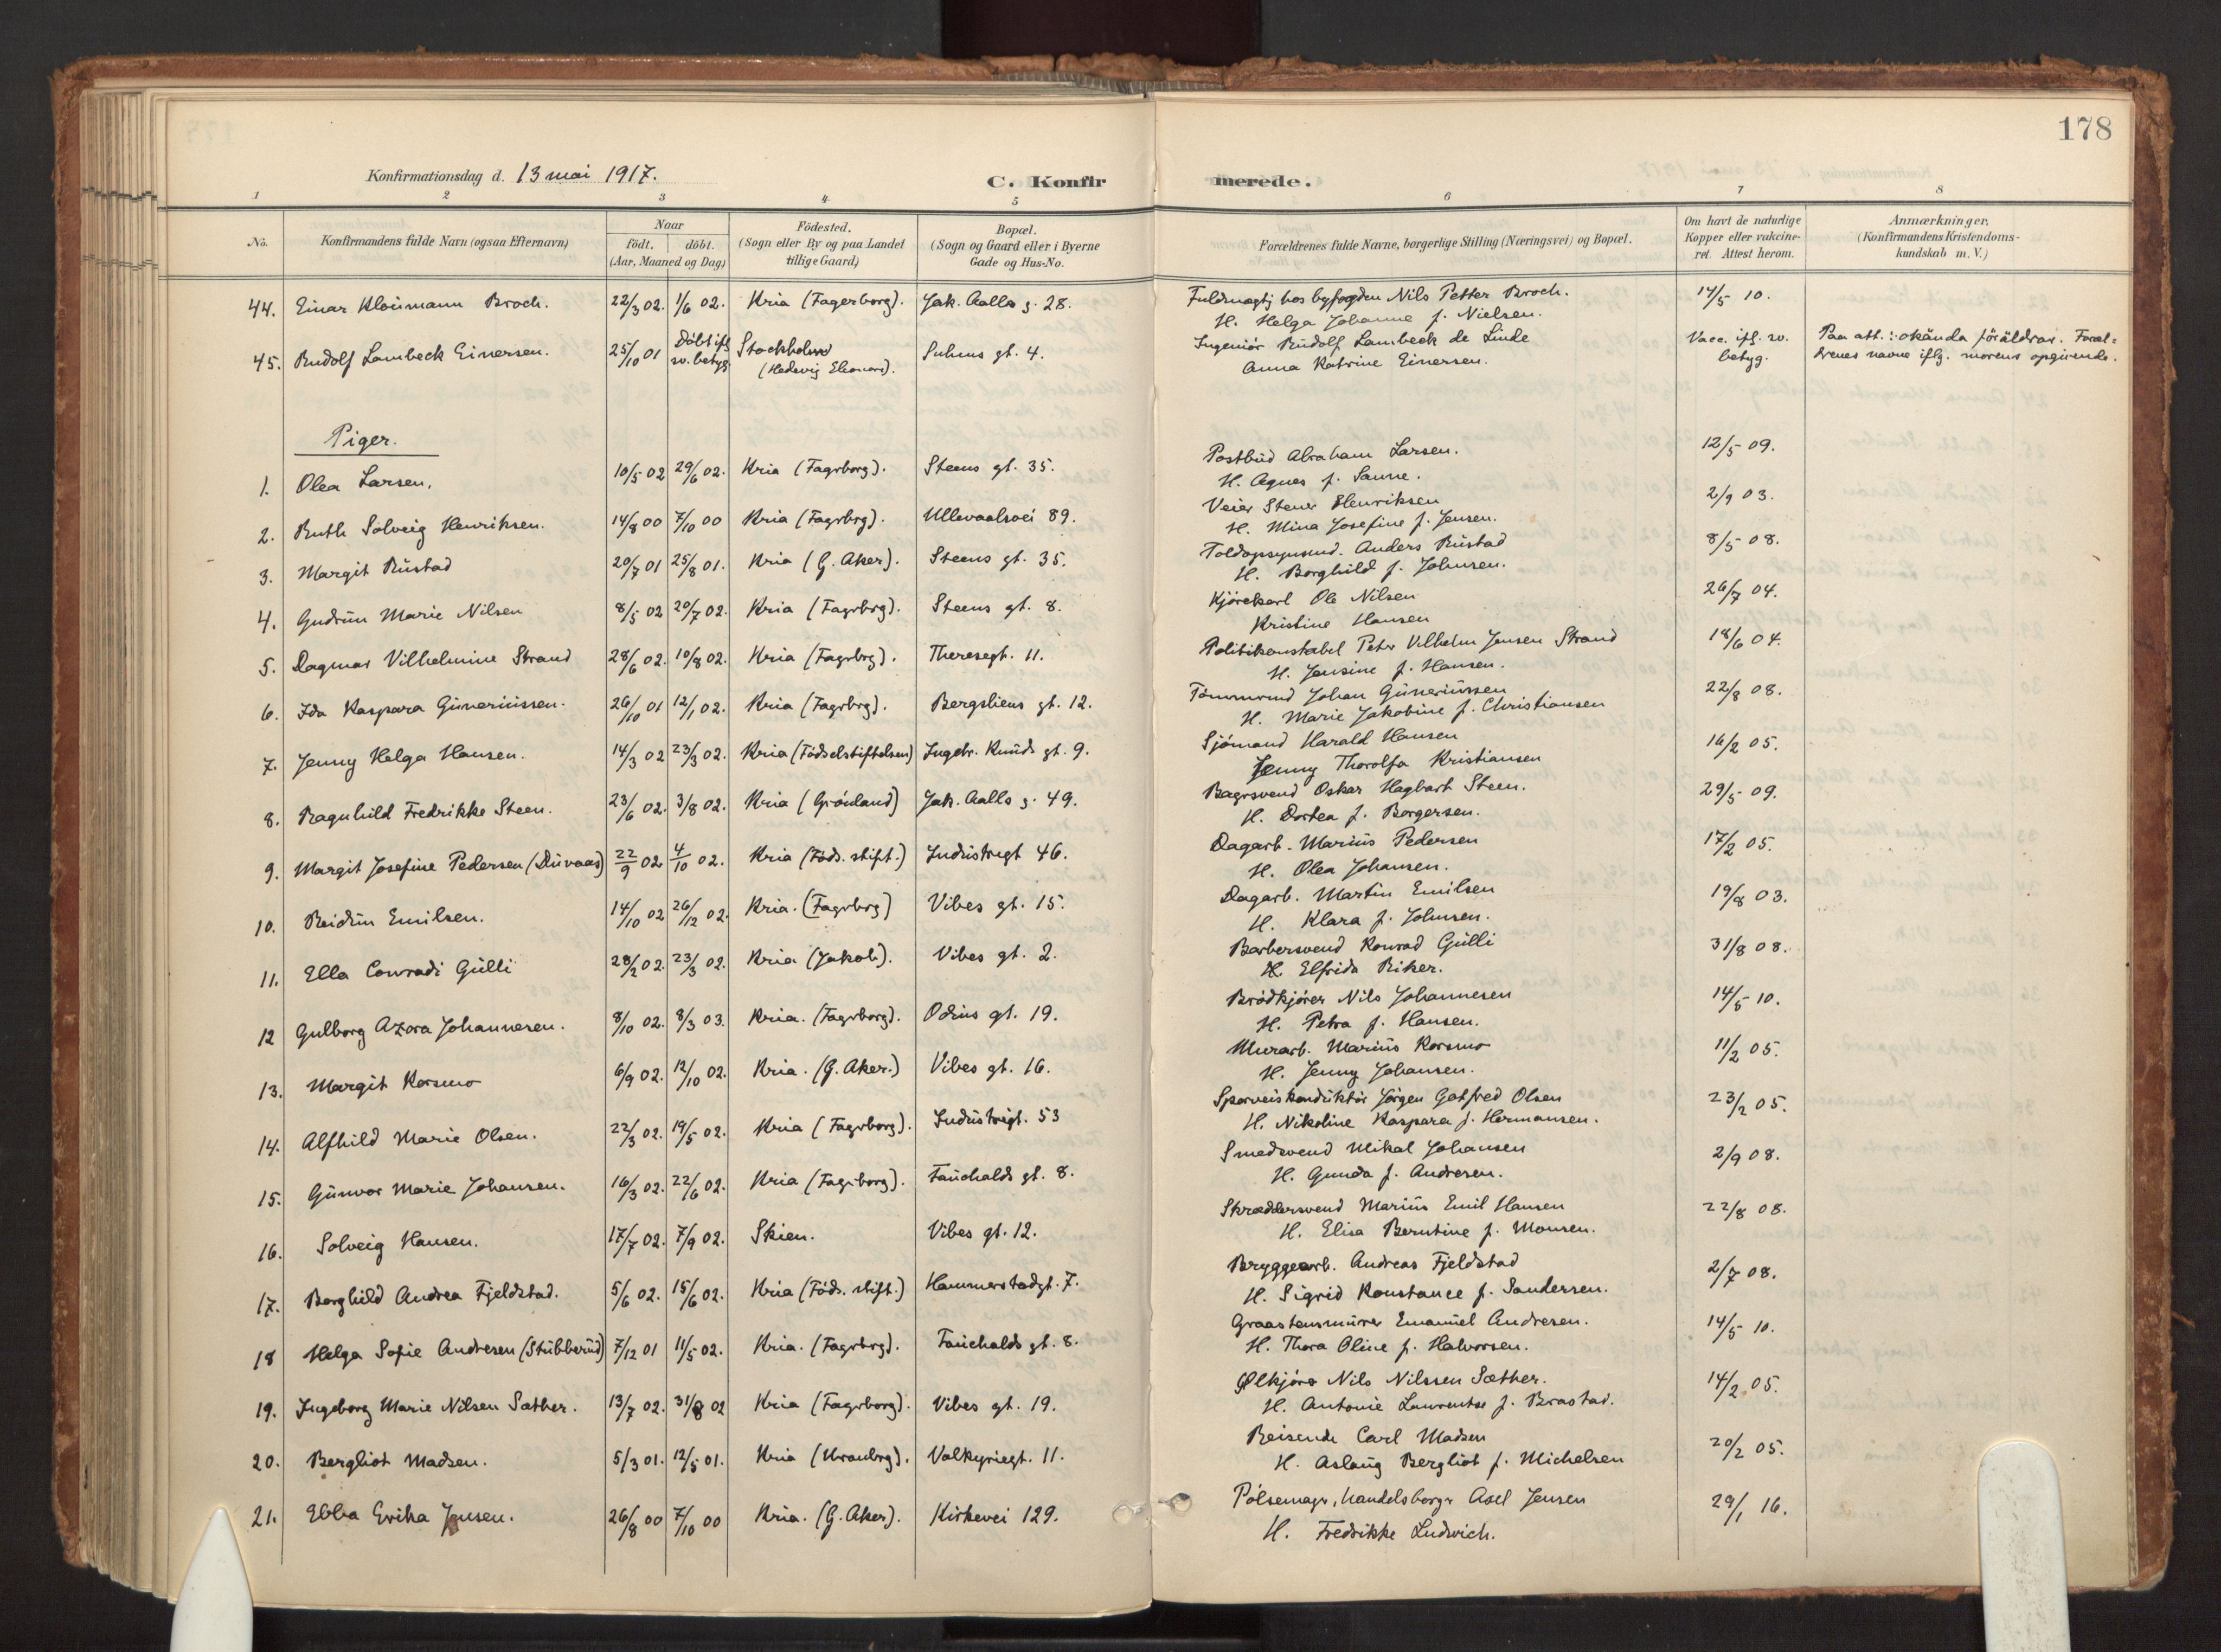 178
Konfirmationsdag d. 13 mai 1917.
C. Konfirmerede.
1 2 3 4 5 6 7 8
No. Konfirmandens fulde Navn (ogsaa Efternavn) Naar födt. döbt. (Aar, Maaned og Dag) Födested. (Sogn eller By og paa Landet tillige Gaard) Bopæl. (Sogn og Gaard eller i Byerne Gade og Hus-No. Forældrenes fulde Navne, borgerlige Stilling (Næringsvei) og Bopæl. Om havt de naturlige Kopper eller vakcineret. Attest herom. Anmærkninger. (Konfirmandens Kristendomskundskab m. V.)
44. Einar Broch. 22/3 02. 1/6 02. Kria (Fagerborg). Jak. Aalls g. 28. Fuldmægtj hos byfogden Nils Petter Broch. 14/5 10.
H. Helga Johanne f. Nielsen.
45. Rudolf Lambeck Einersen. 25/10 01 Döbt ifl. sv. betyg. Stockholm (Hedevig Eleonora). Suhms gt. 4. Ingeniör Rudolf Lambeck de Linde Vacc. ifl. sv. betyg. Paa att.: okända föräldrar. Foræl-
Anna Katrine Einersen. drenes navne iflg. morens opgivende.
Piger.
1. Olea Larsen. 10/5 02 29/6 02. Kria (Fagrborg). Steens gt. 35. Postbud Abraham Larsen. 12/5 09.
H. Agnes f. Sanne.
2. Ruth Solveig Henriksen. 14/8 00 7/10 00 Kria (Fagrbrg). Ullevaalsvei 89. Veier Stener Henriksen 2/9 03.
H. Mina Josefine f. Jensen.
3. Margit Rustad 20/7 01 25/8 01. Kria (G. Aker). Steens gt. 35. Toldopsynsmd. Anders Rustad 8/5 08.
H. Borghild f. Johnsen.
4. Gudrun Marie Nilsen 8/5 02 20/7 02. Kria (Fagrbrg). Steens gt. 8. Kjörekarl Ole Nilsen 26/7 04.
Kristine Hansen
5. Dagmar Vilhelmine Strand 28/6 02. 10/8 02. Kria (Fagrbrg). Theresegt. 11. Politikonstabel Peter Vilhelm Jensen Strand 18/6 04.
H. Jensine f. Hansen.
6. Ida Kaspara Guneriussen. 26/10 01 12/1 02. Kria (Fagrbrg). Bergsliens gt. 12. Tömmermd Johan Guneriussen 22/8 08.
H. Marie Jakobine f. Christiansen
7. Jenny Helga Hansen. 14/3 02 23/3 02. Kria (Födselstiftelsen) Ingebr. Knuds gt. 9. Sjömand Harald Hansen 16/2 05.
Jenny Thorolfa Kristiansen
8. Ragnhild Fredrikke Steen. 23/6 02. 3/8 02. Kria (Grönland) Jak. Aalls g. 49. Bagrsvend Oskar Hagbart Steen. 29/5 09.
H. Dortea f. Borgersen.
9. Margit Josefine Pedersen (Duvaas) 22/9 02 4/10 02. Kria (Föds. stift.) Industrigt 46. Dagarb. Marius Pedersen 17/2 05.
H. Olea Johansen.
10. Reidun Emilsen. 14/10 02 26/12 02. Kria. (Fagrbrg) Vibes gt. 15. Dagarb. Martin Emilsen 19/8 03.
H. Klara f. Johnsen.
11. Ella Conradi Gulli 28/2 02. 23/3 02. Kria (Jakob). Vibes gt. 2. Barbersvend Konrad Gulli 31/8 08.
H. Elfrida Riker.
12 Gulborg Azora Johannesen. 8/10 02. 8/3 03. Kria. (Fagrborg). Odins gt. 19. Brödkjörer Nils Johannesen 14/5 10.
H. Petra f. Hansen.
13. Margit Korsmo 6/9 02. 12/10 02. Kria. (G. Aker.) Vibes gt. 16. Murarb. Marius Korsmo 11/2 05.
H. Jenny Johansen.
14. Alfhild Marie Olsen. 22/3 02. 19/5 02. Kria (Fagrborg). Industrigt. 53 Sporveiskonduktör Jörgen Gotfred Olsen 23/2 05.
H. Nikoline Kaspara f. Hermansen.
15. Gunvor Marie Johansen. 16/3 02. 22/6 02. Kria (Fagrborg). Fauchalds gt. 8. Smedsvend Mikal Johansen 2/9 08.
H. Gunda f. Andresen.
16. Solveig Hansen. 17/7 02. 7/9 02. Skien. Vibes gt. 12. Skræddersvend Marius Emil Hansen 22/8 08.
H. Elisa Berntine f. Monsen.
17. Borghild Andrea Fjeldstad. 5/6 02. 15/6 02. Kria (Föds. stift.) Hammerstadgt. 7. Bryggearb. Andreas Fjeldstad 2/7 08.
H. Sigrid Konstance f. Sandersen.
18 Helga Sofie Andresen (Stubberud) 7/12 01 11/5 02. Kria. (Fagrbrg). Fauchalds gt. 8. Graastensmurer Emanuel Andresen. 14/5 10.
H. Thora Oline f. Halvorsen.
19. Ingeborg Marie Nilsen Sæther. 13/7 02. 31/8 02 Kria (Fagrborg). Vibes gt. 19. Ølkjörer Nils Nilssen Sæther. 14/2 05.
H. Antonie Laurentse f. Brastad.
20. Bergliot Madsen. 5/3 01. 12/5 01. Kria (Uranbrg). Valkyriegt. 11. Reisende Carl Madsen 20/2 05.
H. Aslaug Bergliot f. Michelsen
21. Ebba Erika Jensen. 26/8 00 7/10 00 Kria. (G. Aker). Kirkevei 129. Pölsemagr, handelsborgr Axel Jensen 29/1 16.
H. Fredrikke Ludwich.